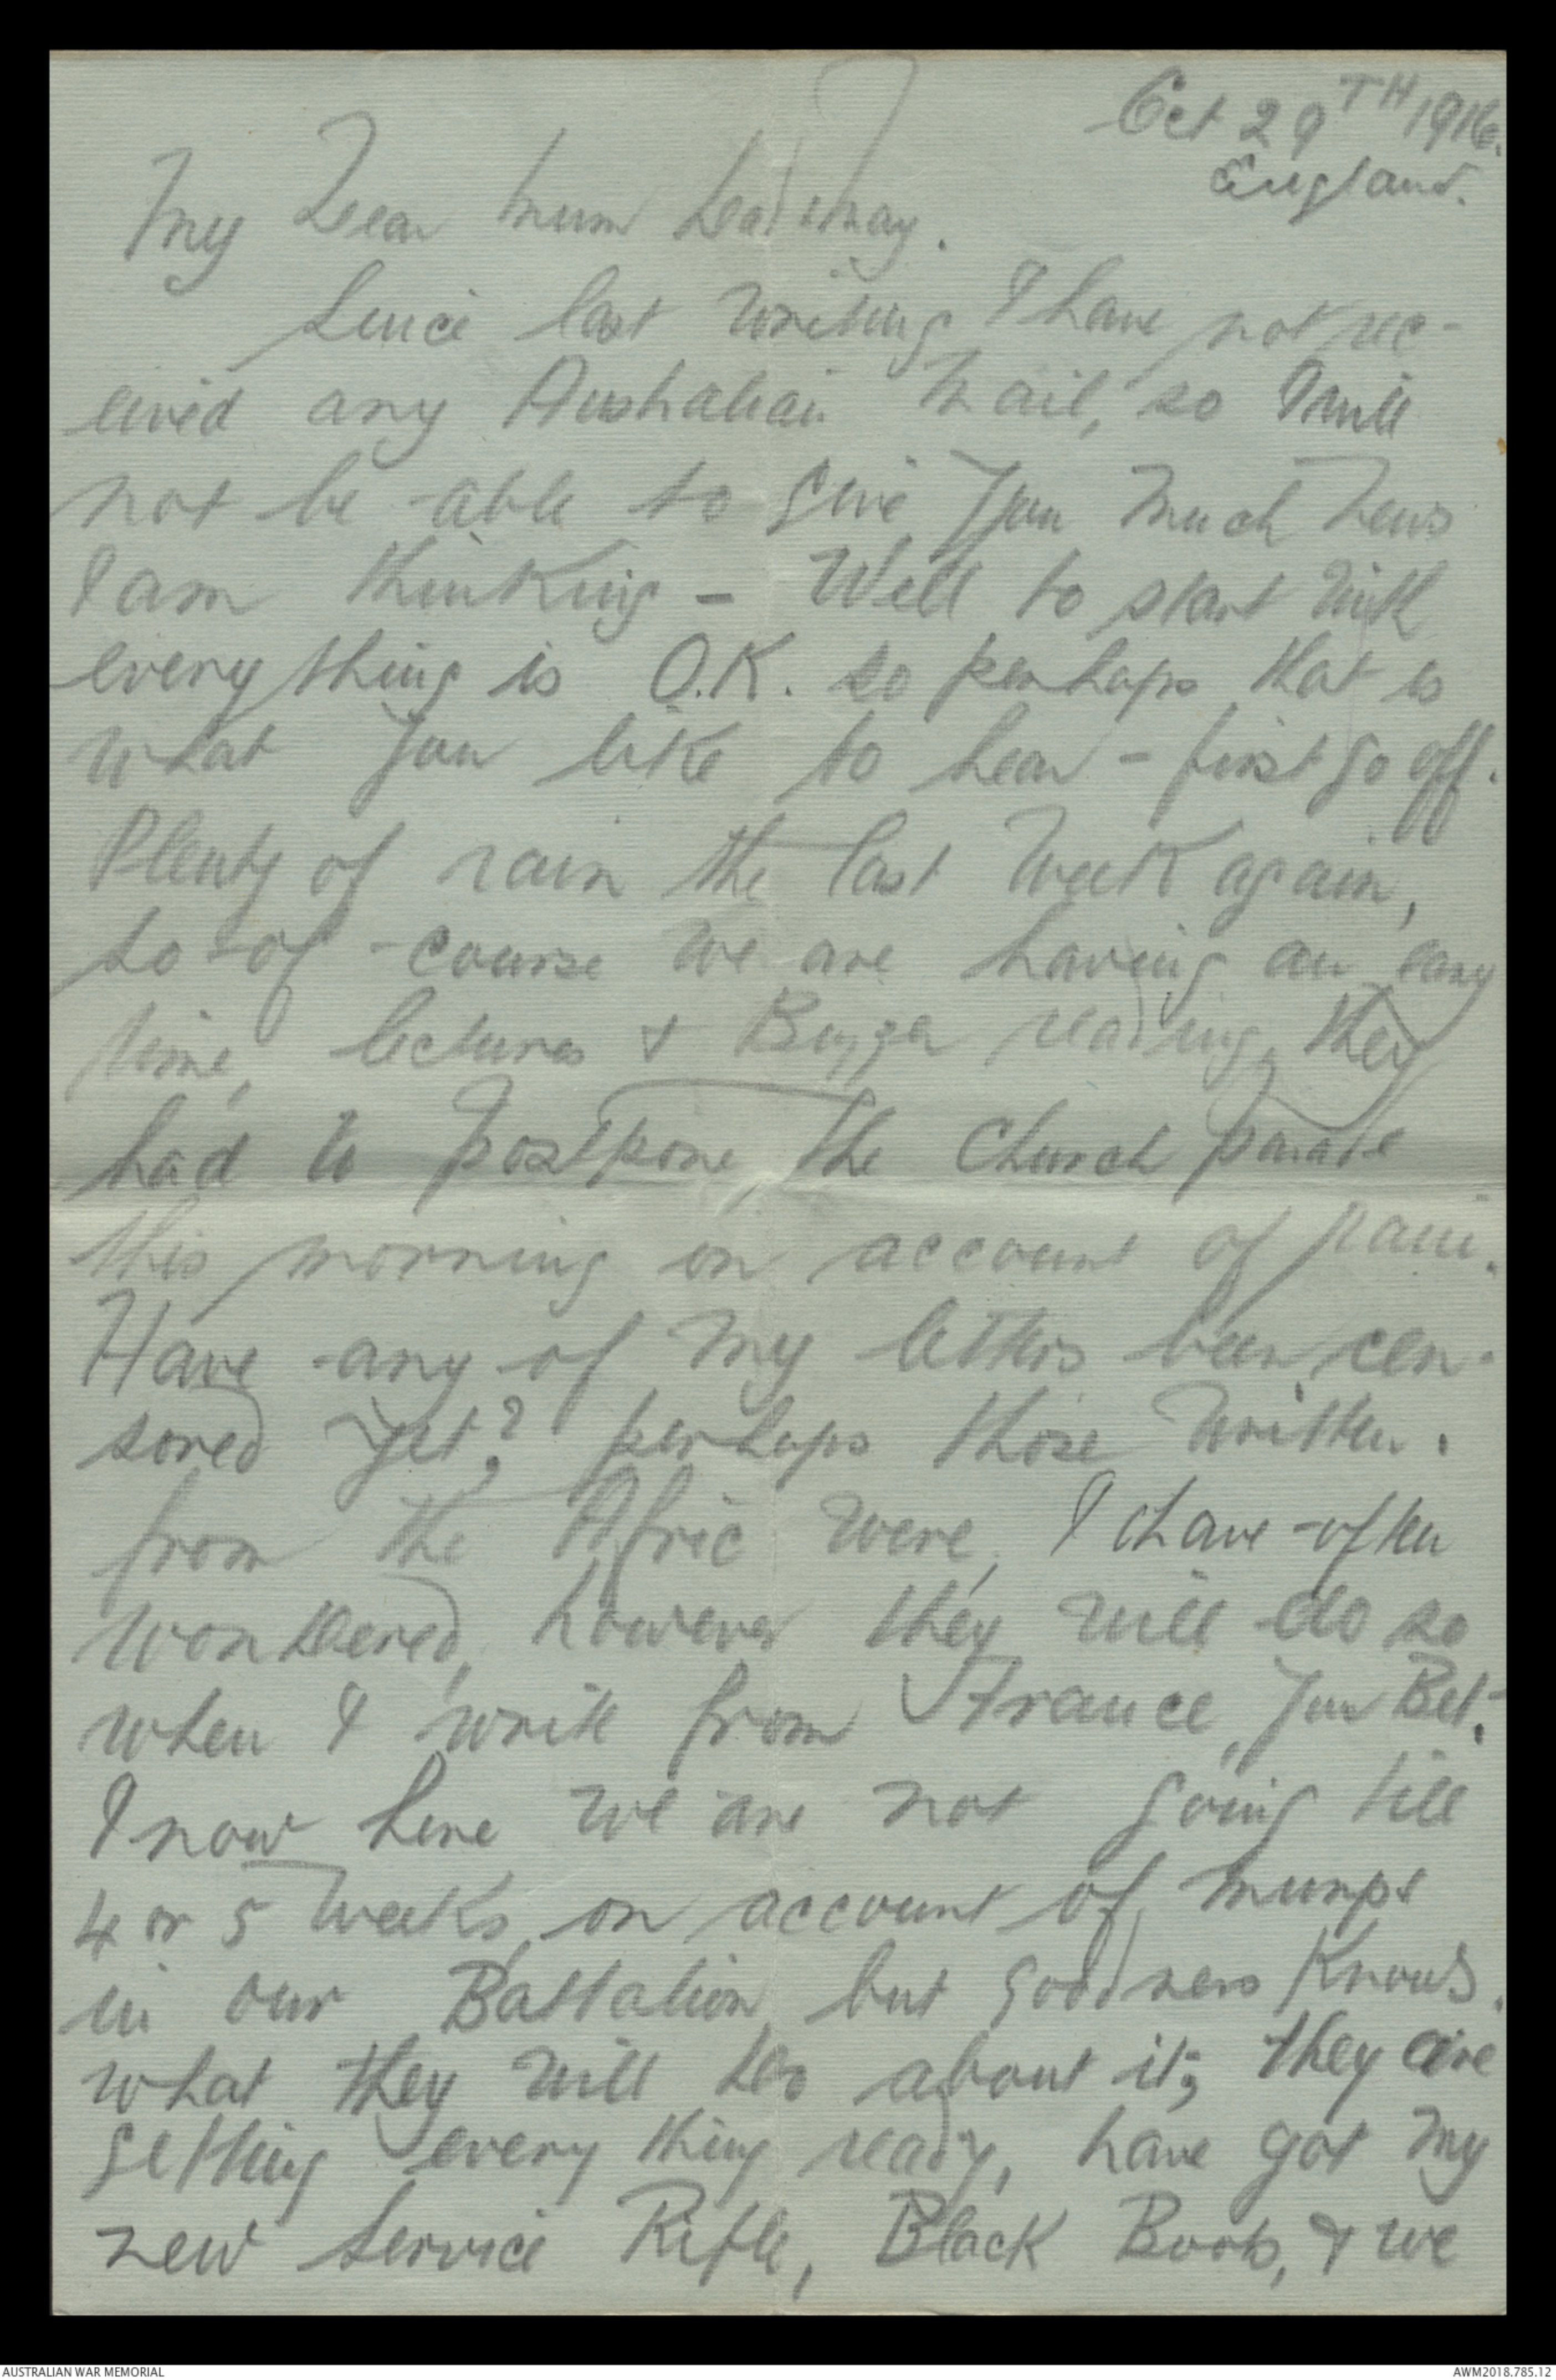 Oct 29TH 1916.
England.
My Dear Mum Dad & May.
Since last writing I have not rec-
eived any Australian Mail, so I will
not be able to give you much news
I am thinking - Well to start with
everything is O.K. so perhaps that is
what you like to hear - first go off.
Plenty of rain the last week again,
so of course we are having an easy
time, lectures & Buzzer reading, they
had to postpone, the Church parade
this morning on account of rain.
Have any of my letters been cen-
sored yet? perhaps those written.
from the Afric were, I have often
wondered, however they will do so
when I write from France, you Bet.
I now hear we are not going till
4 or 5 weeks, on account of mumps
in our Battalion, but goodness knows.
what they will do about it; they are
getting every thing ready, have got my
new Service Rifle, Black Boots, & we
AUSTRALIAN WAR MEMORIAL
AWM2018.785.12